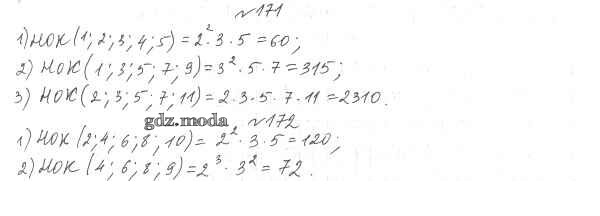 №171
1) НОК (1; 2; 3; 4; 5) = 2² · 3 · 5 = 60;
2) НОК (1; 3; 5; 7; 9) = 3² · 5 · 7 = 315;
3) НОК (2; 3; 5; 7; 11) = 2 · 3 · 5 · 7 · 11 = 2310.
gdz.moda №172
1) НОК (2; 4; 6; 8; 10) = 2² · 3 · 5 = 120;
2) НОК (4; 6; 8; 9) = 2³ · 3² = 72.